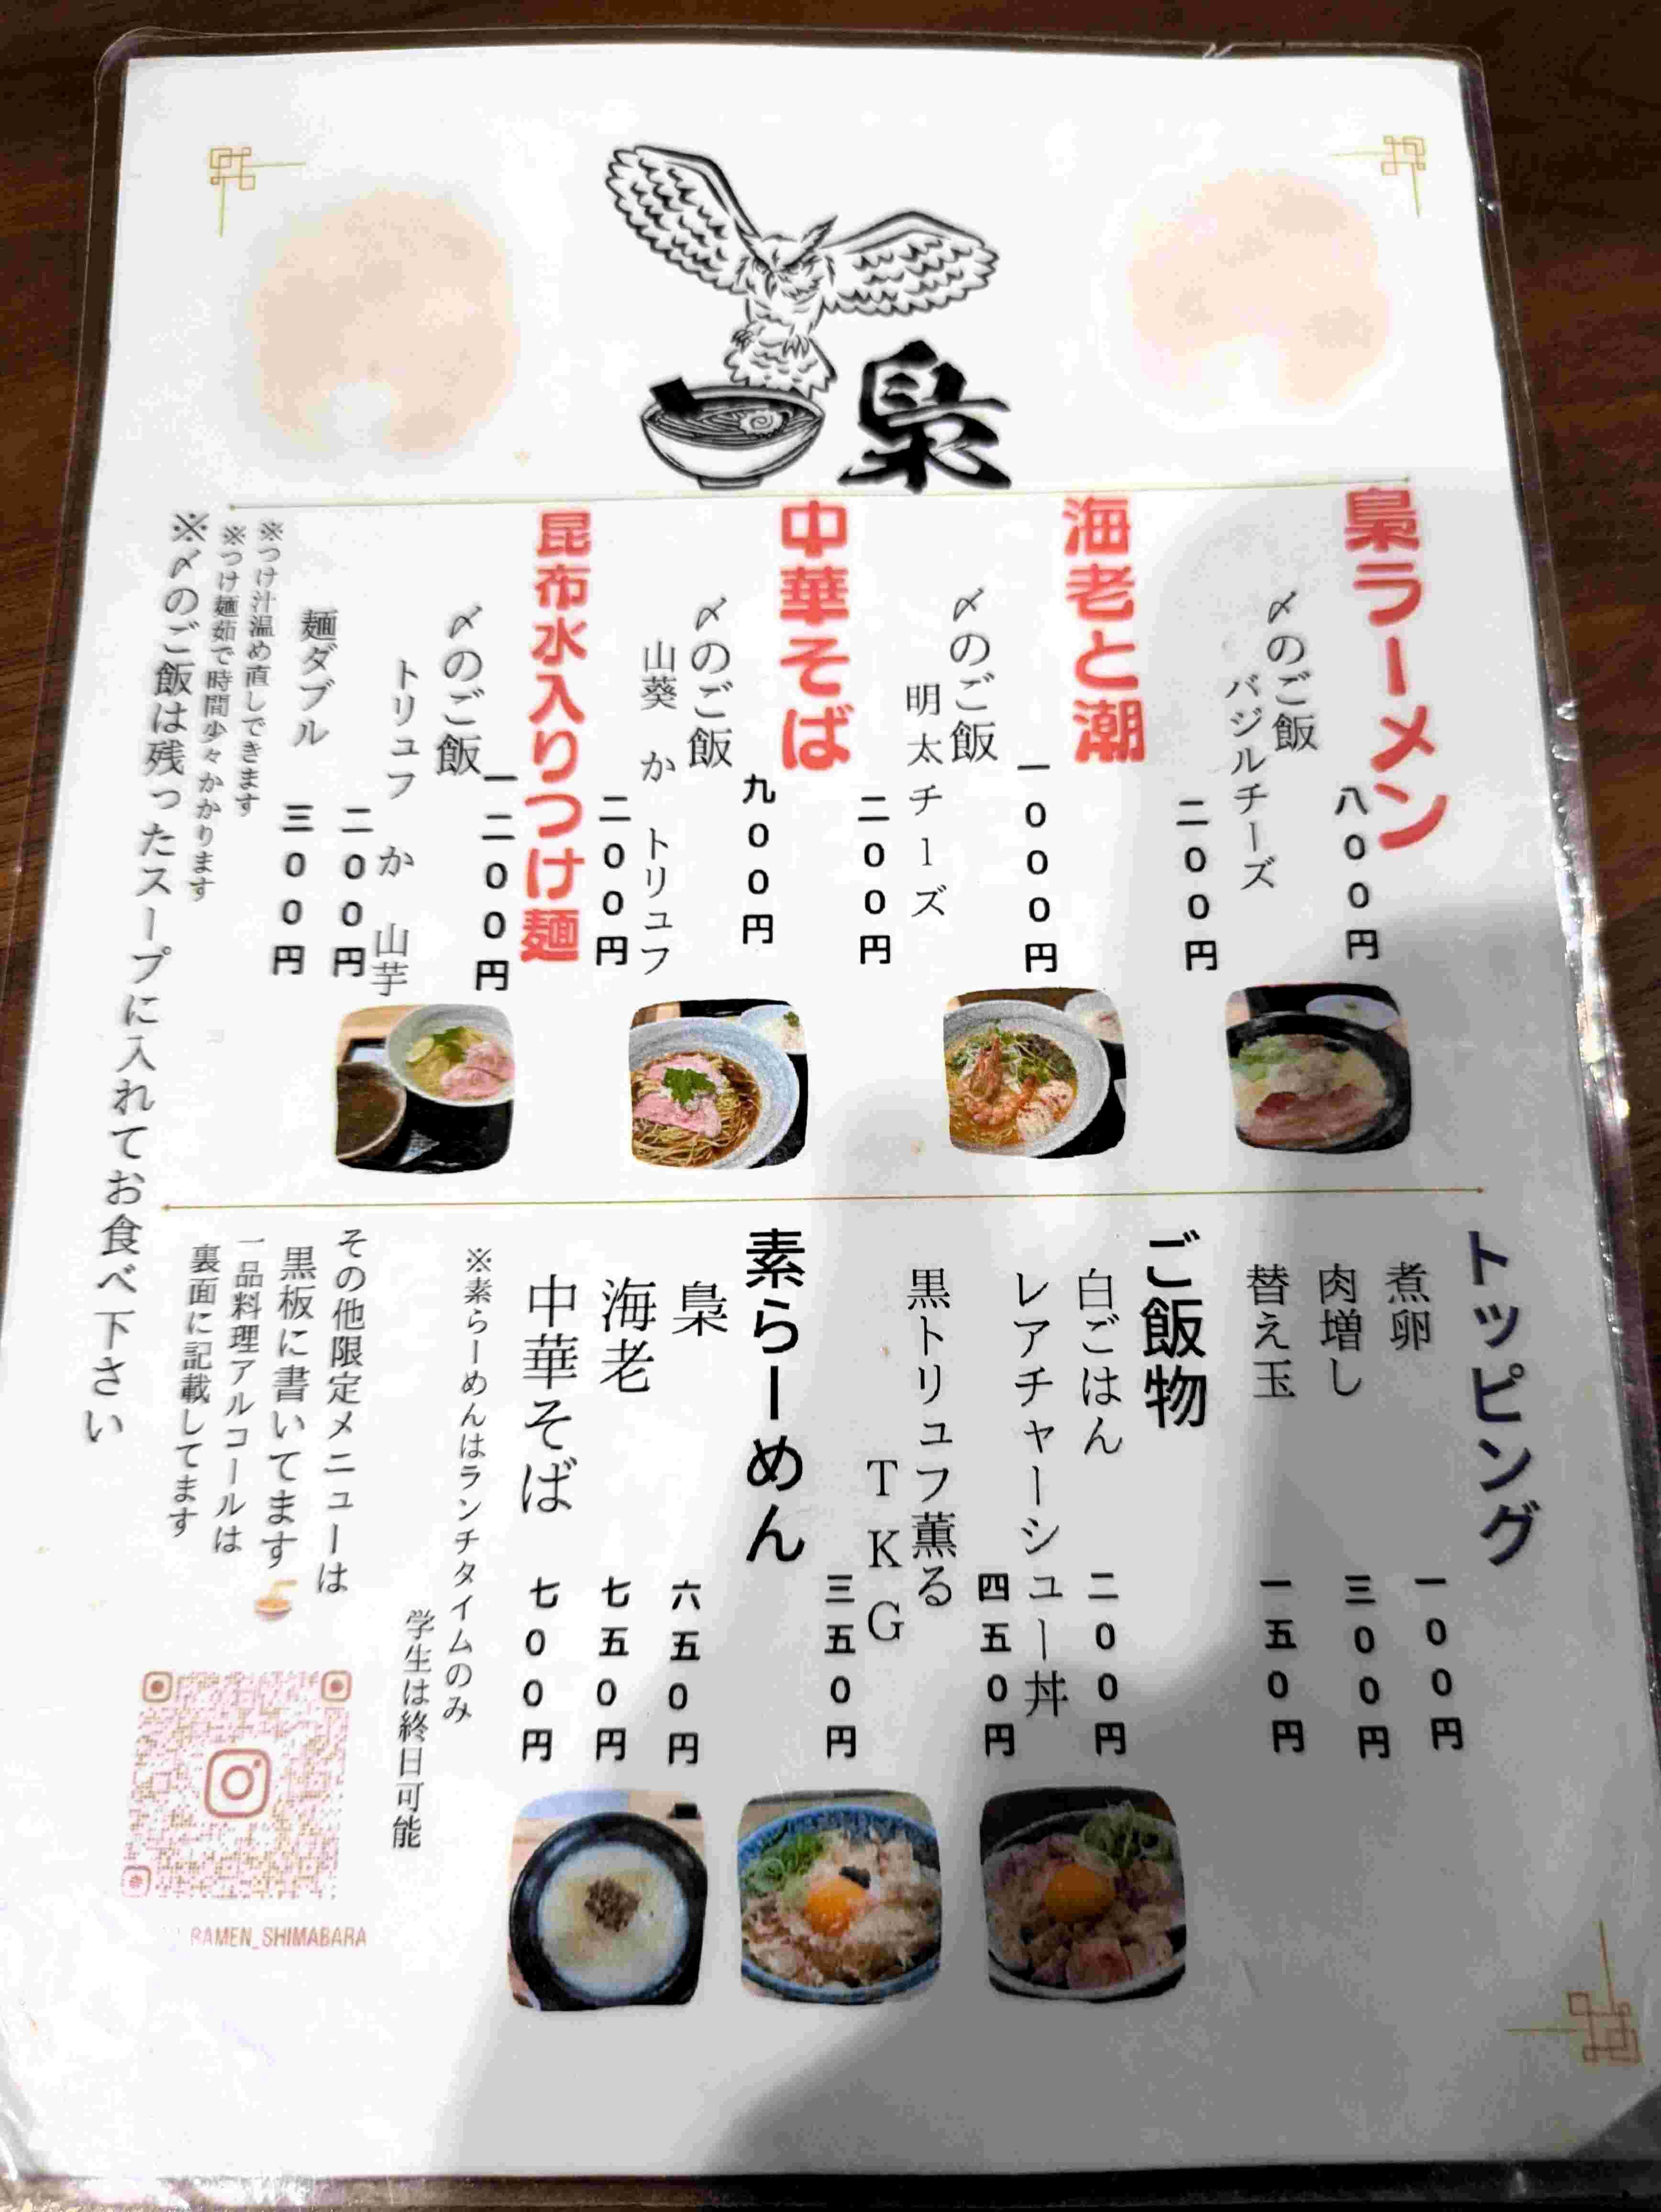 梟
梟ラーメン
八〇〇円
〆のご飯
バジルチーズ
二〇〇円
海老と潮
一〇〇〇円
〆のご飯
明太チーズ
二〇〇円
中華そば
九〇〇円
〆のご飯
山葵 か トリュフ
二〇〇円
昆布水入りつけ麺
一二〇〇円
〆のご飯
トリュフ か 山芋
二〇〇円
麺ダブル
三〇〇円
※つけ汁温め直しできます
※つけ麺茹で時間少々かかります
※〆のご飯は残ったスープに入れてお食べ下さい
トッピング
煮卵 一〇〇円
肉増し 三〇〇円
替え玉 一五〇円
ご飯物
白ごはん 二〇〇円
レアチャーシュー丼
四五〇円
黒トリュフ薫る
TKG
三五〇円
素らーめん
梟 六五〇円
海老 七五〇円
中華そば 七〇〇円
※素らーめんはランチタイムのみ
学生は終日可能
その他限定メニューは
黒板に書いてます
一品料理アルコールは
裏面に記載してます
RAMEN_SHIMABARA